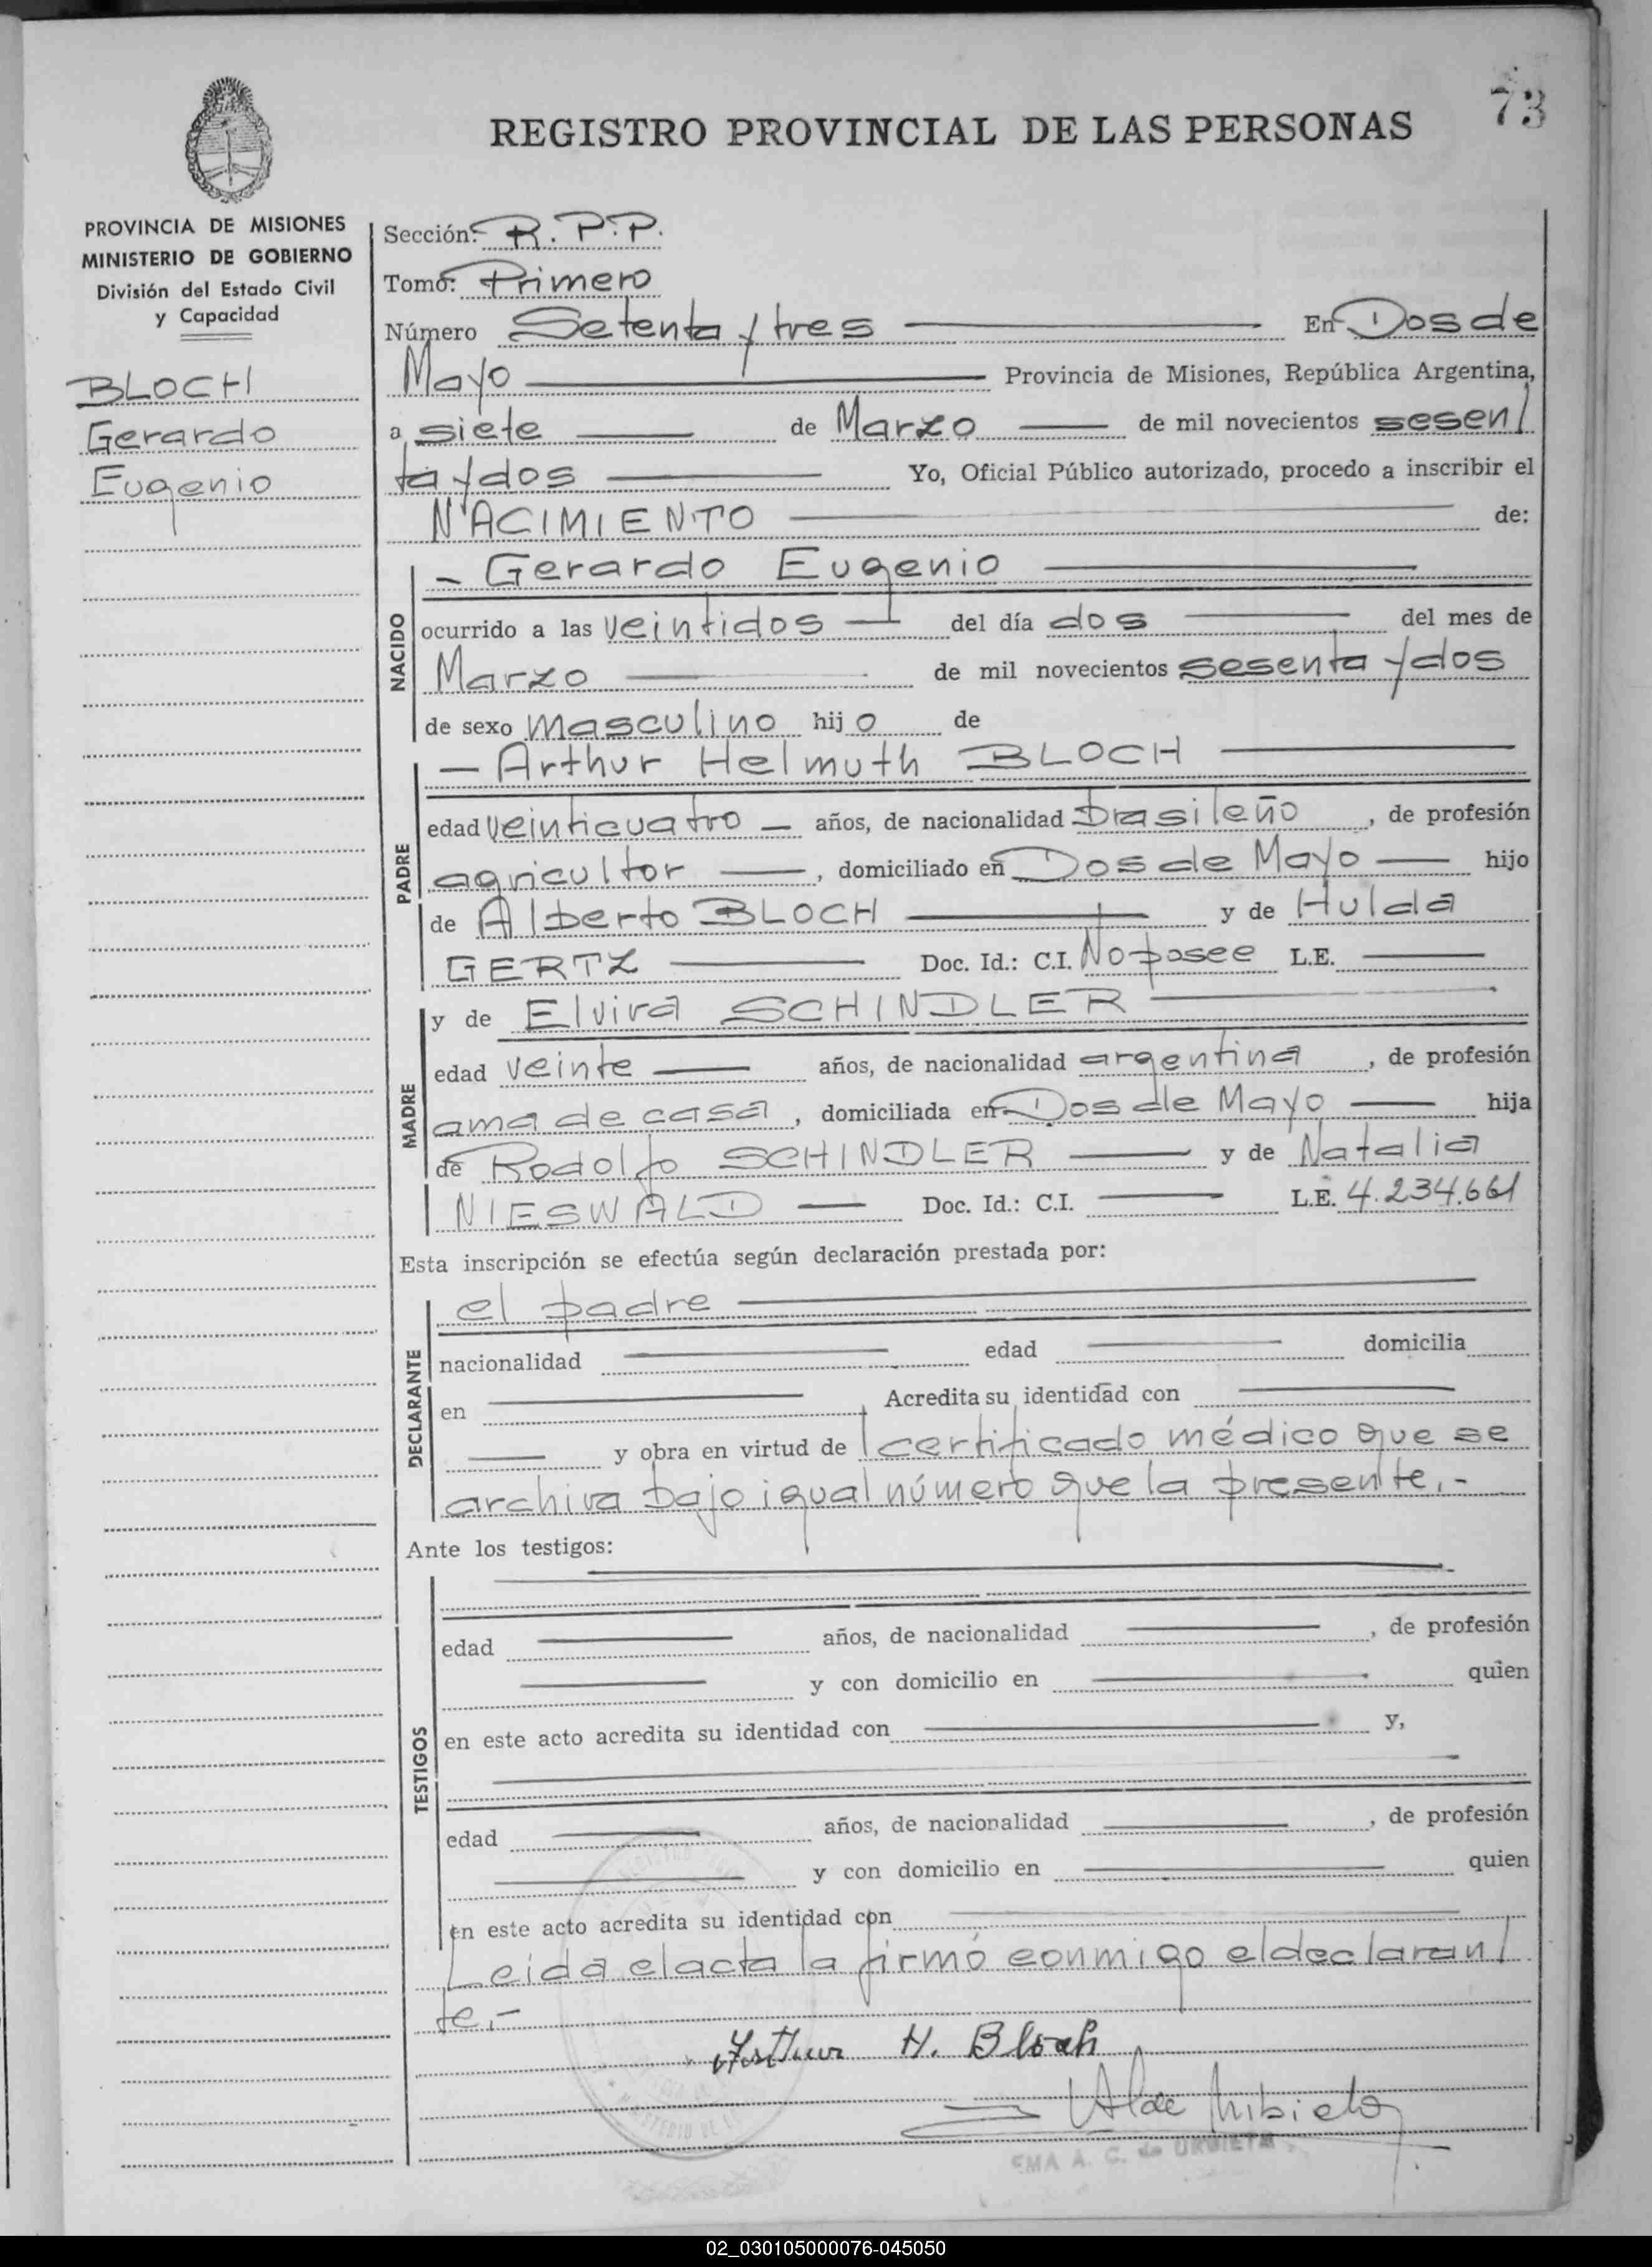 73
REGISTRO PROVINCIAL DE LAS PERSONAS
PROVINCIA DE MISIONES
MINISTERIO DE GOBIERNO
División del Estado Civil
y Capacidad
BLOCH
Gerardo
Eugenio
Sección: R.P.P.
Tomo: Primero
Número Setenta y tres En Dos de
Mayo Provincia de Misiones, República Argentina,
a siete de Marzo de mil novecientos sesen/
ta y dos Yo, Oficial Público autorizado, procedo a inscribir el
NACIMIENTO de:
NACIDO
- Gerardo Eugenio
ocurrido a las veintidos del día dos del mes de
Marzo de mil novecientos sesenta y dos
de sexo masculino hijo de
PADRE
- Arthur Helmuth BLOCH
edad veinticuatro años, de nacionalidad brasileño, de profesión
agricultor, domiciliado en Dos de Mayo hijo
de Alberto BLOCH y de Hulda
GERTZ Doc. Id.: C.I. No posee L.E.
MADRE
y de Elvira SCHINDLER
edad veinte años, de nacionalidad argentina, de profesión
ama de casa, domiciliada en Dos de Mayo hija
de Rodolfo SCHINDLER y de Natalia
NIESWALD Doc. Id.: C.I. L.E. 4.234.661
Esta inscripción se efectúa según declaración prestada por:
DECLARANTE
el padre
nacionalidad edad domicilia
en Acredita su identidad con
y obra en virtud de certificado médico que se
archiva bajo igual número que la presente.-
Ante los testigos:
TESTIGOS
edad años, de nacionalidad , de profesión
y con domicilio en quien
en este acto acredita su identidad con y,
edad años, de nacionalidad , de profesión
y con domicilio en quien
en este acto acredita su identidad con
Leida el acta la firmó conmigo el declaran/
te.-
Arthur H. Bloch
EMA A. C. de URBIETA
02_030105000076-045050